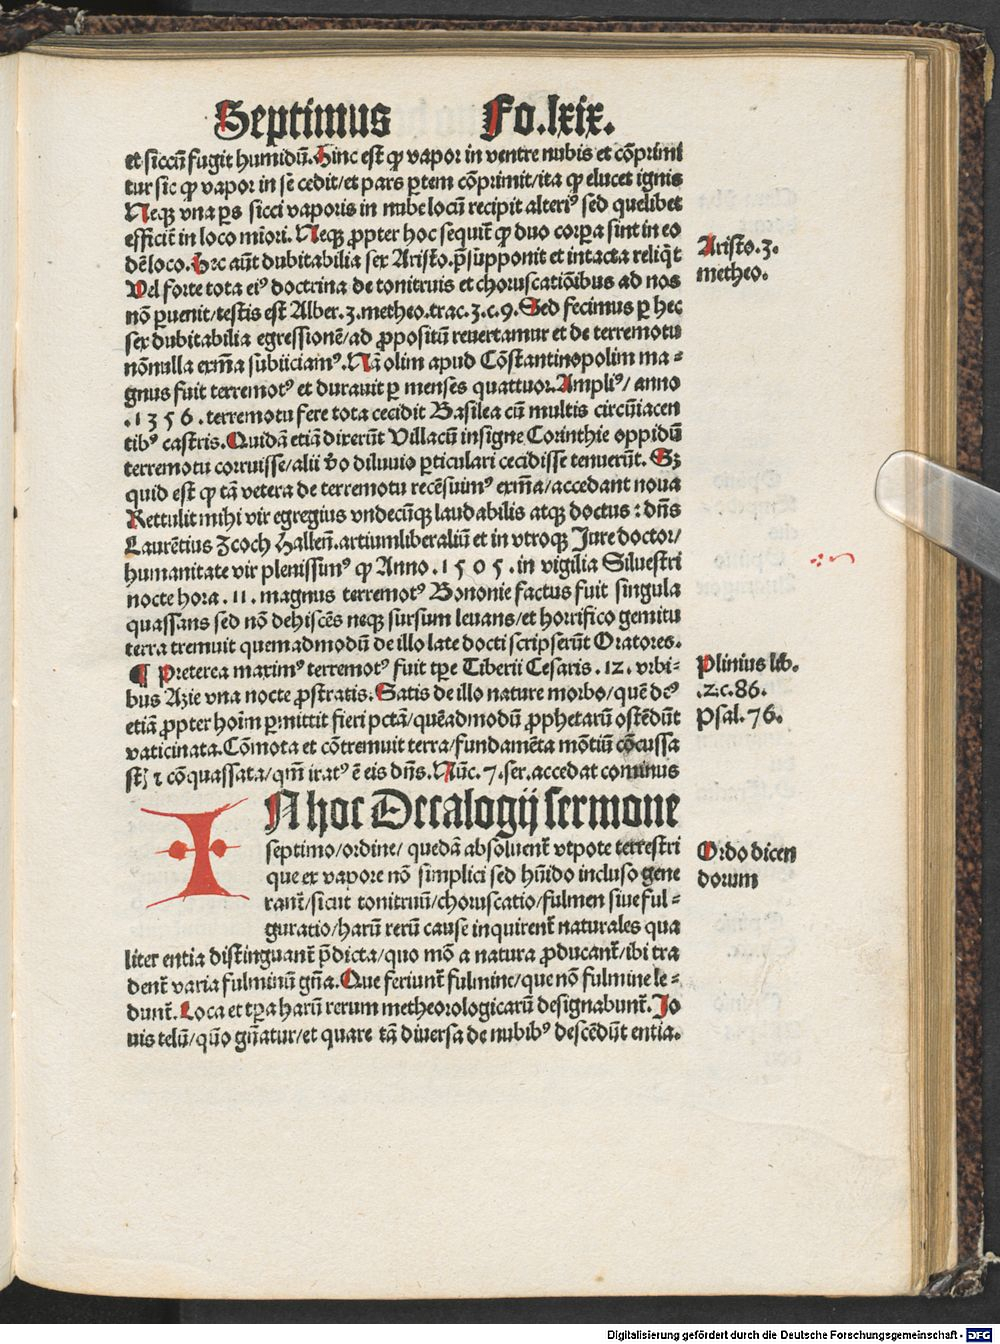 Septimus Fo.lxix.
et siccũ fugit humidũ. Hinc est ꝙ vapor in ventre nubis et cõprimi
tur sic ꝙ vapor in se cedit/et pars ꝑtem cõprimit/ita ꝙ elucet ignis
Neqꝫ vna ꝑs sicci vaporis in nube locũ recipit alteriꝰ sed quelibet
efficit̃ in loco mĩori. Neqꝫ ꝓpter hoc sequit̃ ꝙ duo corꝑa sint in eo
dẽ loco. Hec aũt dubitabilia sex Aristo. p̃supponit et intacta reliq̃t
Vel forte tota eiꝰ doctrina de tonitruis et choruscatiõibus ad nos
nõ ꝑuenit/testis est Alber.3.metheo.trac.3.c.9. Sed fecimus ꝑ hec
sex dubitabilia egressionẽ/ad ꝓpositũ reuertamur et de terremotu
nõnulla exm̃a subiiciamꝰ. Nã olim apud Cõstantinopolim ma-
gnus fuit terremotꝰ et durauit ꝑ menses quattuor. Ampliꝰ/ anno
.1356. terremotu fere tota cecidit Basilea cũ multis circũiacen
tibꝰ castris. Quidã etiã dixerũt Villacũ insigne Corinthie oppidũ
terremotu corruisse/alii ṽo diluuio ꝑticulari cecidisse tenuerũt. Sꝫ
quid est ꝙ tã vetera de terremotu recẽsuimꝰ exm̃a/accedant noua
Rettulit mihi vir egregius vndecũqꝫ laudabilis atqꝫ doctus: dñs
Laurẽtius Zcoch Hallen̄. artium liberaliũ et in vtroqꝫ Jure doctor/
humanitate vir plenissimꝰ ꝙ Anno .1505. in vigilia Siluestri
nocte hora .11. magnus terremotꝰ Bononie factus fuit singula
quassans sed nõ dehiscẽs neqꝫ sursum leuans/et horrifico gemitu
terra tremuit quemadmodũ de illo late docti scripserũt Oratores.
¶ Preterea maximꝰ terremotꝰ fuit tꝑe Tiberii Cesaris .12. vrbi-
bus Azie vna nocte ꝓstratis. Satis de illo nature morbo/quẽ deꝰ
etiã ꝓpter hoĩm ꝑmittit fieri pctã/quẽadmodũ ꝓphetarũ ostẽdũt
vaticinata. Cõmota et cõtremuit terra/fundamẽta mõtiũ cõcussa
st̃ ⁊ cõquassata/qm̃ iratꝰ ẽ eis dñs. Nũc.7.ser.accedat cominus
IN hoc Decalogij sermone
septimo/ordine/ quedã absoluent̃ vtpote terrestri
que ex vapore nõ simplici sed hũido incluso gene
rant̃/sicut tonitruũ/choruscatio/fulmen siue ful-
guratio/harũ rerũ cause inquirent̃ naturales qua
liter entia distinguant̃ p̃dicta/quo mõ a natura ꝓducant̃/ibi tra
dent̃ varia fulminũ gña. Que feriunt̃ fulmine/que nõ fulmine le-
dunt̃. Loca et tꝑa harũ rerum metheorologicarũ designabunt̃. Jo
uis telũ/quõ gñatur/et quare tã diuersa de nubibꝰ descẽdũt entia.
Aristo.3.
metheo.
Plinius lib.
.2.c.86.
Psal.76.
Ordo dicen
dorum
Digitalisierung gefördert durch die Deutsche Forschungsgemeinschaft - DFG